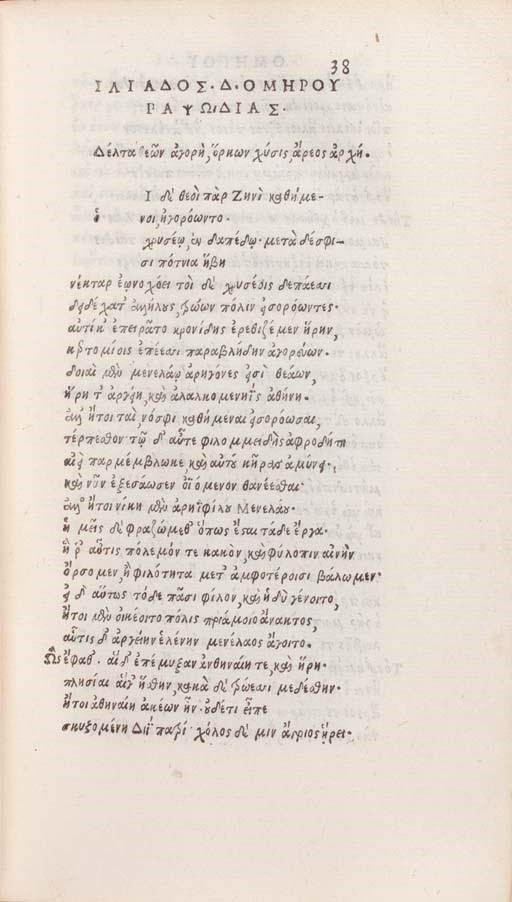 38
ΙΛΙΑΔΟΣ·Δ·ΟΜΗΡΟΥ
ΡΑΨΩΔΙΑΣ·
Δέλτα θεῶν ἀγορὴ, ὅρκων χύσις, ἄρεος ἀρχή.
Ι δὲ θεοὶ πὰρ Ζηνὶ καθήμε-
ὁ νοι, ἠγορόωντο·
χρυσέῳ ἐν δαπέδῳ· μετὰ δέ σφι-
σι πότνια ἥβη
νέκταρ ἐῳνοχόει· τοὶ δὲ χρυσέοις δεπάεσσι
δειδέχατ' ἀλλήλους, τρώων πόλιν εἰσορόωντες·
αὐτίκ' ἐπειρᾶτο κρονίδης ἐρεθιζέμεν ἥρην,
κερτομίοις ἐπέεσσι παραβλήδην ἀγορεύων·
δοιαὶ μὲν μενελάῳ ἀρηγόνες εἰσὶ θεάων,
ἥρη τ' ἀργείη, καὶ ἀλαλκομενηῒς ἀθήνη·
ἀλλ' ἤτοι ταὶ, νόσφι καθήμεναι εἰσορόωσαι,
τέρπεσθον· τῷ δ' αὖτε φιλομμειδὴς ἀφροδίτη
αἰεὶ παρμέμβλωκε καὶ αὐτοῦ κῆρας ἀμύνει·
καὶ νῦν ἐξεσάωσεν ὀϊόμενον θανέεσθαι·
ἀλλ' ἤτοι νίκη μὲν ἀρηϊφίλου Μενελάου·
ἡμεῖς δὲ φραζώμεθ' ὅπως ἔσται τάδε ἔργα·
ἤ ῥ' αὖτις πόλεμόν τε κακὸν, καὶ φύλοπιν αἰνὴν
ὄρσομεν, ἢ φιλότητα μετ' ἀμφοτέροισι βάλωμεν·
εἰ δ' αὔτως τόδε πᾶσι φίλον, καὶ ἡδὺ γένοιτο,
ἤτοι μὲν οἰκέοιτο πόλις πριάμοιο ἄνακτος,
αὖτις δ' ἀργείην ἑλένην μενέλαος ἄγοιτο·
Ὣς ἔφαθ'· αἱ δ' ἐπέμυξαν ἀθηναίη τε, καὶ ἥρη·
πλησίαι αἵγ' ἥσθην, κακὰ δὲ τρώεσσι μεδέσθην·
ἤτοι ἀθηναίη ἀκέων ἦν· οὐδέτι εἶπε
σκυζομένη Διῒ πατρί· χόλος δέ μιν ἄγριος ᾕρει·